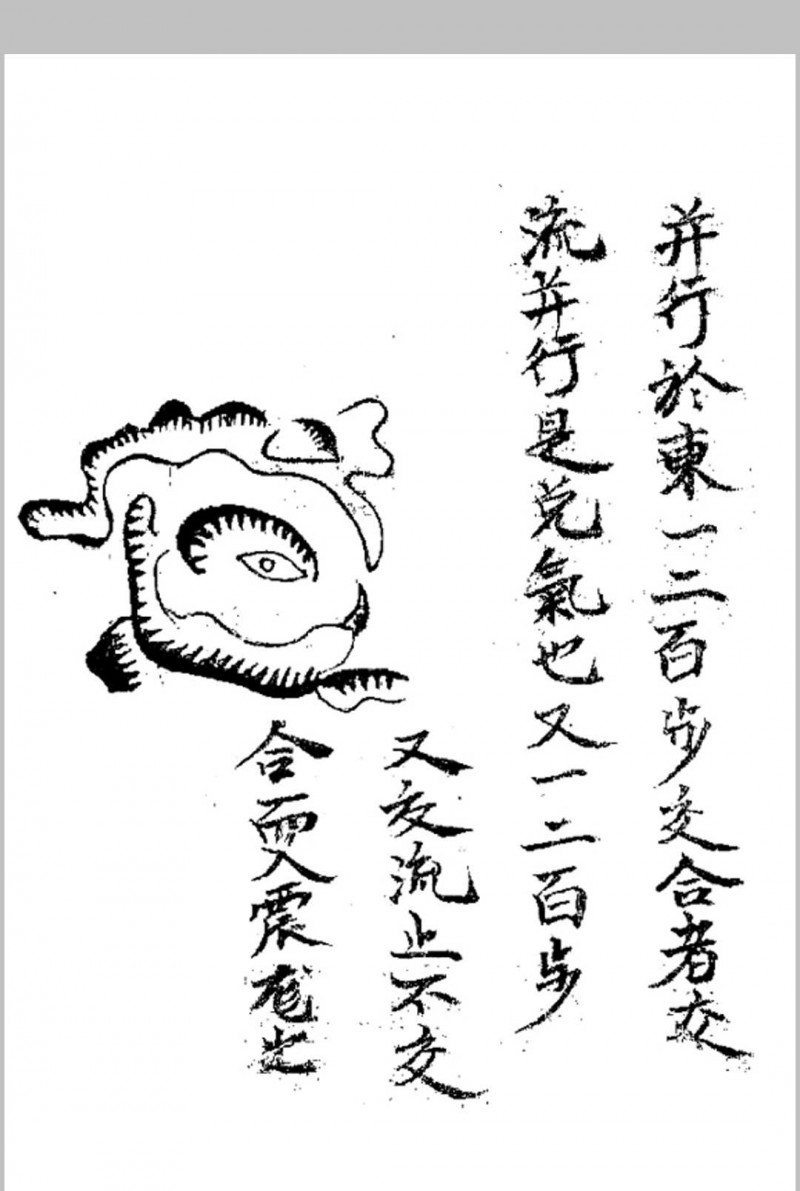 并行於東一二百步交合者交
流并行是兌氣也又一二百步
又交流止不交
合而入震龙也